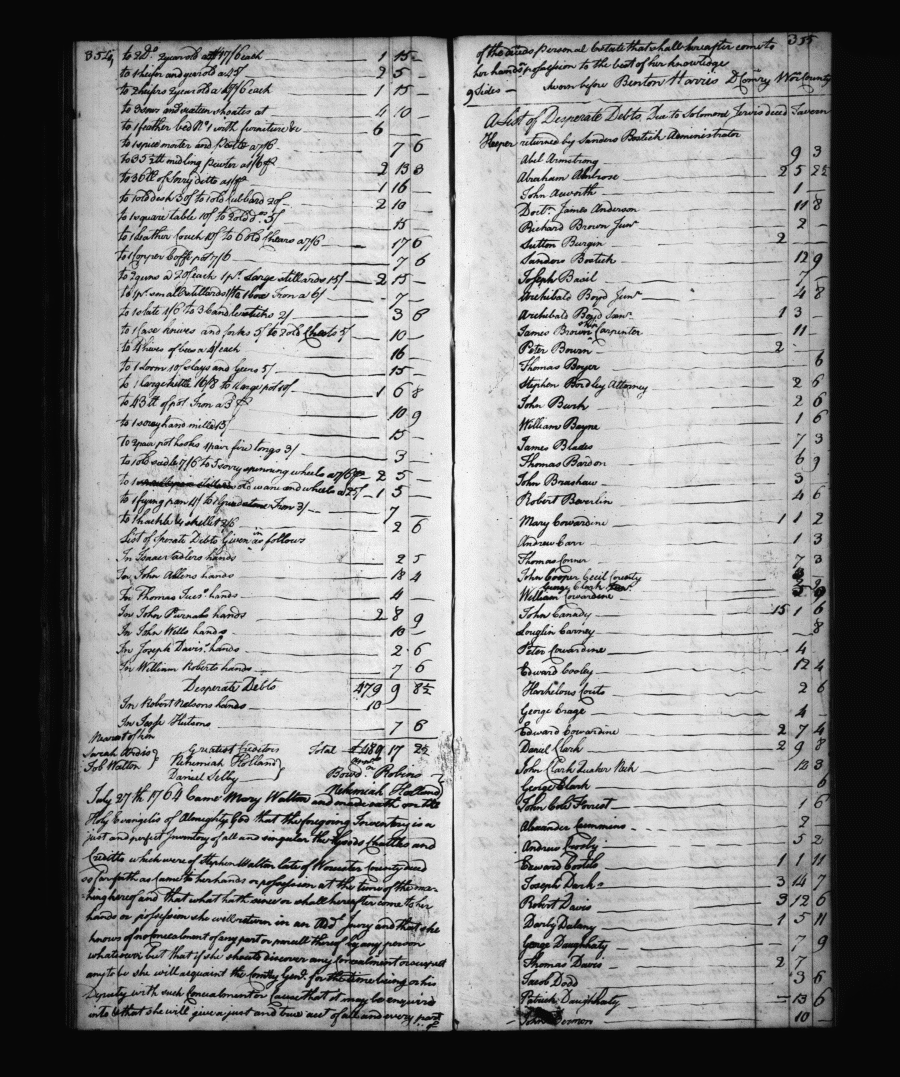 354
to 2 Do. 2 year old a 17/6 each 1 15 -
to 1 heifer and yearold a 45/ 2 5 -
to 2 heifers 2 year old a 17/6 each 1 15 -
to 3 sows and sixteen shoats at 4 10 -
to 1 feather bed No. 1 with furniture &c 6 - -
to 1 spice morter and Pestle a 7/6 7 6
to 35 1/2 lb midling Pewter a 1/6 2 13 3
to 36 lb of Sorry ditto a 1/ 1 16 -
to 1 old desk 30/ to 1 old Cubbard 20/ 2 10
to 1 square table 10/ to 2 old Do. 5/ 15
to 1 leather Couch 10/ to 6 old Chears a 7/6 17 6
to 1 Copper Coffe pot 7/6 7 6
to 2 guns a 20/ each 1 pr. Large stillards 15/ 2 15 -
to 1 pr. small stillards 1/ to 1 box Iron a 6/ 7 -
to 1 slate 1/6 to 3 Candlesticks 2/ 3 6
to 1 Case knives and forks 5/ to 2 old Chests 5/ 10 -
to 4 hives of bees a 4/ each 16
to 1 Loom 10/ Slays and Geers 5/ 15 -
to 1 large kittle 16/8 to 1 large pot 10/ 1 6 8
to 43 lb of pot Iron a 3d 10 9
to 1 sorey hand mill 15/ 15 -
to 2 pair pot hooks 1 pair fire tongs 3/ 3
to 1 old sadle 7/6 to 5 sorry spinning wheels a 7/6 2 5 -
to 1 old ware and wheels a 25/ 1 5 -
to 1 frying pan 4/ to 1 Iron 3/ 7 -
to 1 hackle & skellet 2/6 2 6
List of Sperate Debts Given in as follows
In Isaac hands 2 5
In John Allens hands 18 4
In Thomas hands 4 -
In John Purnals hands 2 8 9
In John Wells hands 10 -
In Joseph Davis. hands 2 6
In William Roberts hands 7 6
Desperate Debts 479 9 8 1/2
In Robert Nelsons hands 10 -
In Jesse Hutsons 7 6
Nearest of kin
Sarah Ardis Greatest Creditors Total £489 17 2 1/2
Job Walton Nehemiah Holland
Daniel Selby Bowd. Robins
Nehemiah Holland
July 27th 1764 Came Mary Walton and made oath on the
Holy Evangelis of Almighty God that the foregoing Inventory is a
just and perfect Inventory of all and singular the Goods Chattles and
Credits which were of Stephen Walton late of Worcester County deced
so far forth as Came to her hands or possession at the time of the ma-
king hereof and that what hath since or shall hereafter come to her
hands or possession she will return in an Add. Invry and that she
knows of no Concealment of any part or parcell thereof by any person
whatsoever but that if she shoud discover any Concealment or suspect
any to be she will acquaint the Comsry Genl. for the time being or his
Deputy with such Concealment or Cause that it may be enquired
into & that she will give a just and true acct of all and every part
of
355
of the deceds personal Estate that shall hereafter come to
her hands or possession to the best of her knowledge
9 Sides Sworn before Benton Harris D Comry Wor County
A List of Desperate Debts, Due to Solomon Jervis deced Tavern
Keeper returned by Sanders Bostick Administrator
Abel Armstrong 9 3
Abraham Ambrose 2 5 2 1/2
John Acworth 1 -
Doctr. James Anderson 11 8
Richard Brown Junr 2 -
Sutton Burgin 2 - -
Sanders Bostick 12 9
Joseph Basil 7
Archibald Boyd Junr 4 8
Archibald Boyd Senr. 1 3 -
James Brown Carpenter 11 -
Peter Bourn 2 -
Thomas Boyer 6
Stephen Bordley Attorney 2 6
John Burk 2 6
William Beyne 1 6
James Blades 7 3
Thomas Bardon 6 9
John Brashaw 3
Robert Beverlin 4 6
Mary Cowardine 1 1 2
Andrew Carr 1 3
Thomas Corner 7 3
John Cooper Cecil County
George Clark
William Cowardine
John Canady 15 1 6
Louglin Carney 8
Peter Cowardine 4
Edward Cooley 12 4
2 6
George Crage 4
Edward Cowardine 2 7 4
Daniel Clark 2 9 8
John Clark Quaker Neck 12 3
George Clark 6
John Cole Forrest 1 6
Alexander Cummins 2
Andrew Crosby 5 2
Edward Costilo 1 1 11
Joseph Dark 3 14 7
Robert Davis 3 12 6
Darby Delany 1 5 11
George Daughaty 7 9
Thomas Davis 2 7
Jacob Dodd 3 6
Patrick Daughaty 13 6
John 10 -